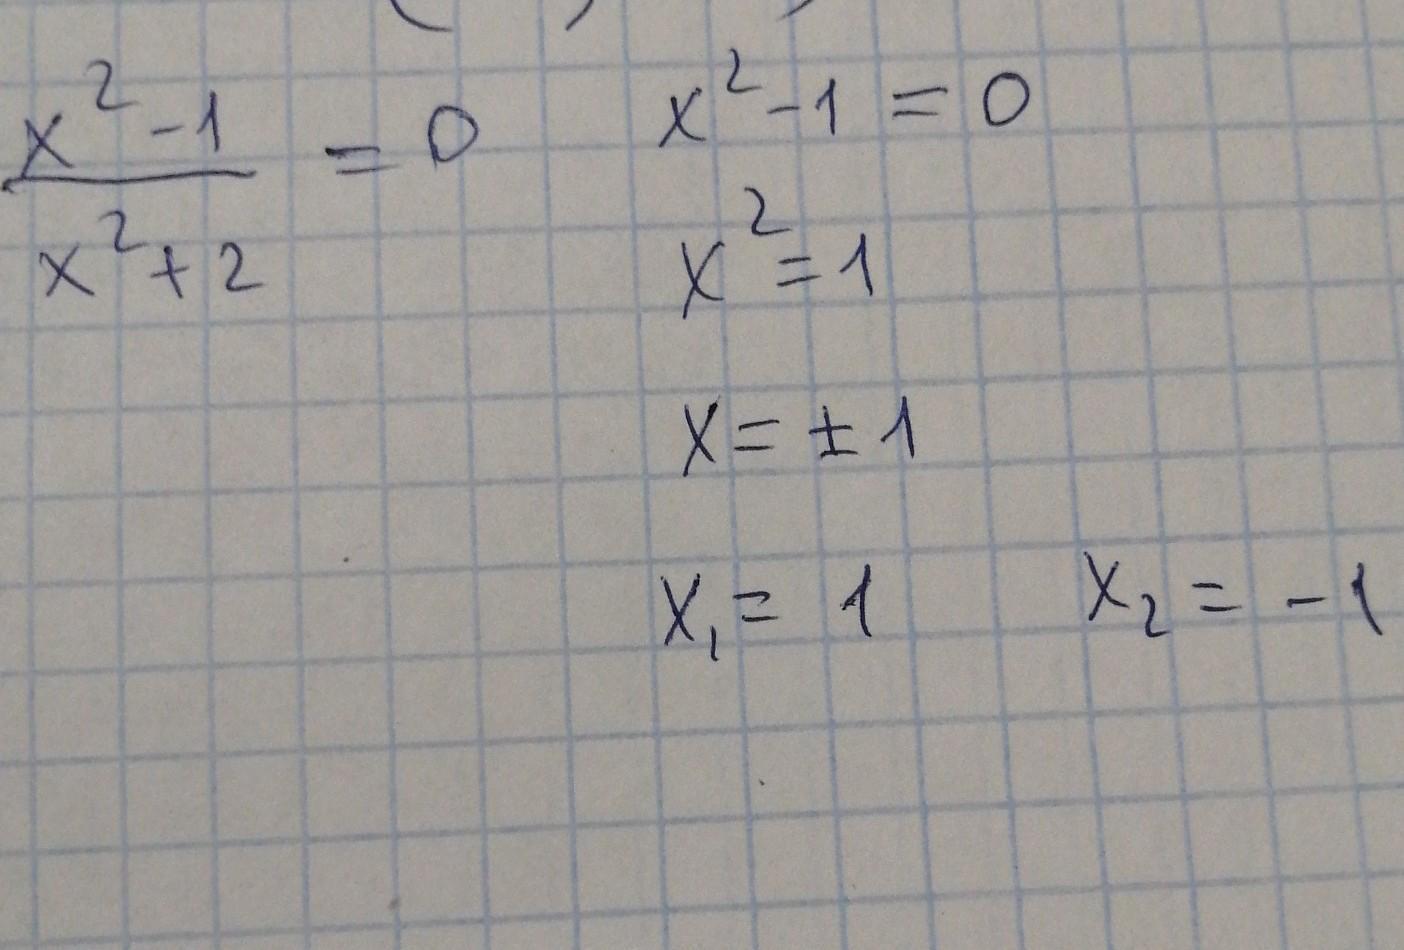 x² - 1 / x² + 2 = 0
x² - 1 = 0
x² = 1
x = ± 1
x₁ = 1 x₂ = -1